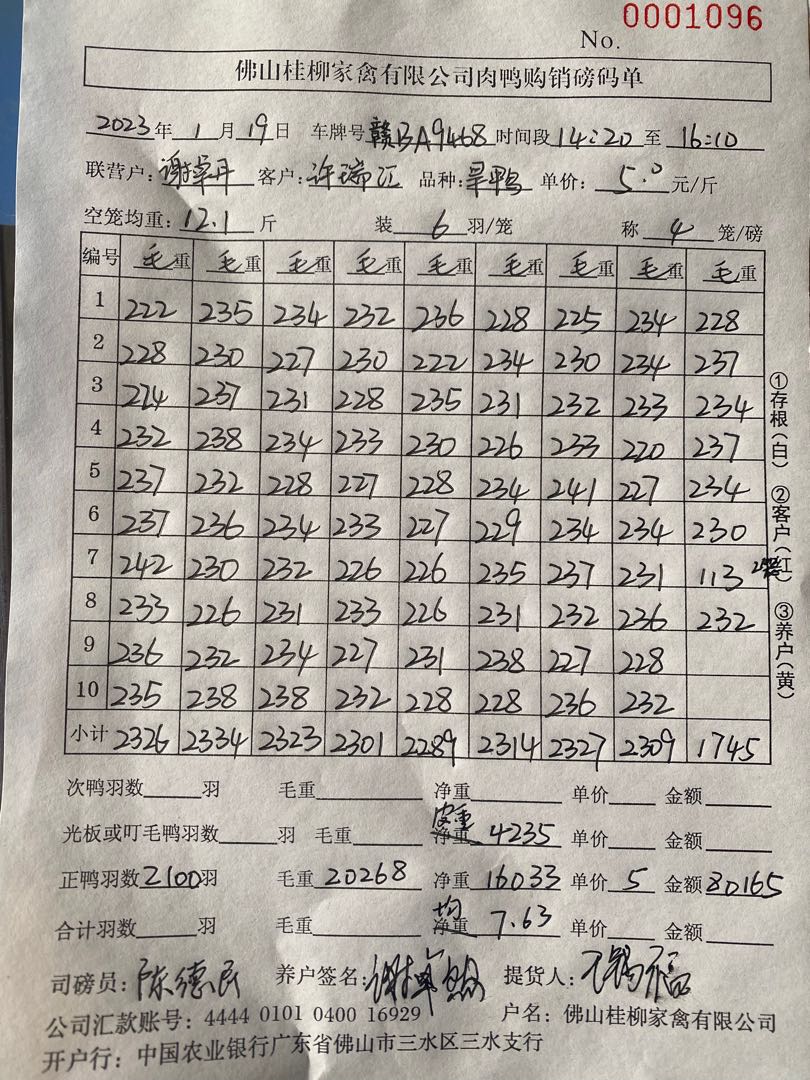 No. 0001096
佛山桂柳家禽有限公司肉鸭购销磅码单
2023年 1月19日 车牌号赣BA9468 时间段14:20至16:10
联营户:谢卓丹 客户:许瑞江 品种:旱鸭 单价:5.0元/斤
空笼均重:12.1斤 装6羽/笼 称4笼/磅
编号 毛重 毛重 毛重 毛重 毛重 毛重 毛重 毛重 毛重
1 222 235 234 232 236 228 225 234 228
2 228 230 227 230 222 234 230 234 237
3 224 237 231 228 235 231 232 233 234
4 232 238 234 233 230 226 233 220 237
5 237 232 228 227 228 234 241 227 234
6 237 236 234 233 227 229 234 234 230
7 242 230 232 226 226 235 237 231 113
8 233 226 231 233 226 231 232 236 232
9 236 232 234 227 231 238 227 228
10 235 238 238 232 228 228 236 232
小计 2326 2334 2323 2301 2289 2314 2327 2309 1745
次鸭羽数 羽 毛重 净重 单价 金额
光板或叮毛鸭羽数 羽 毛重 皮重 净重 4235 单价 金额
正鸭羽数2100羽 毛重20268 净重16033 单价5 金额80165
合计羽数 羽 毛重 均 净重 7.63 单价 金额
司磅员:陈德民 养户签名:谢卓 提货人:福
公司汇款账号:4444 0101 0400 16929 户名:佛山桂柳家禽有限公司
开户行:中国农业银行广东省佛山市三水区三水支行
①存根(白) ②客户(红) ③养户(黄)